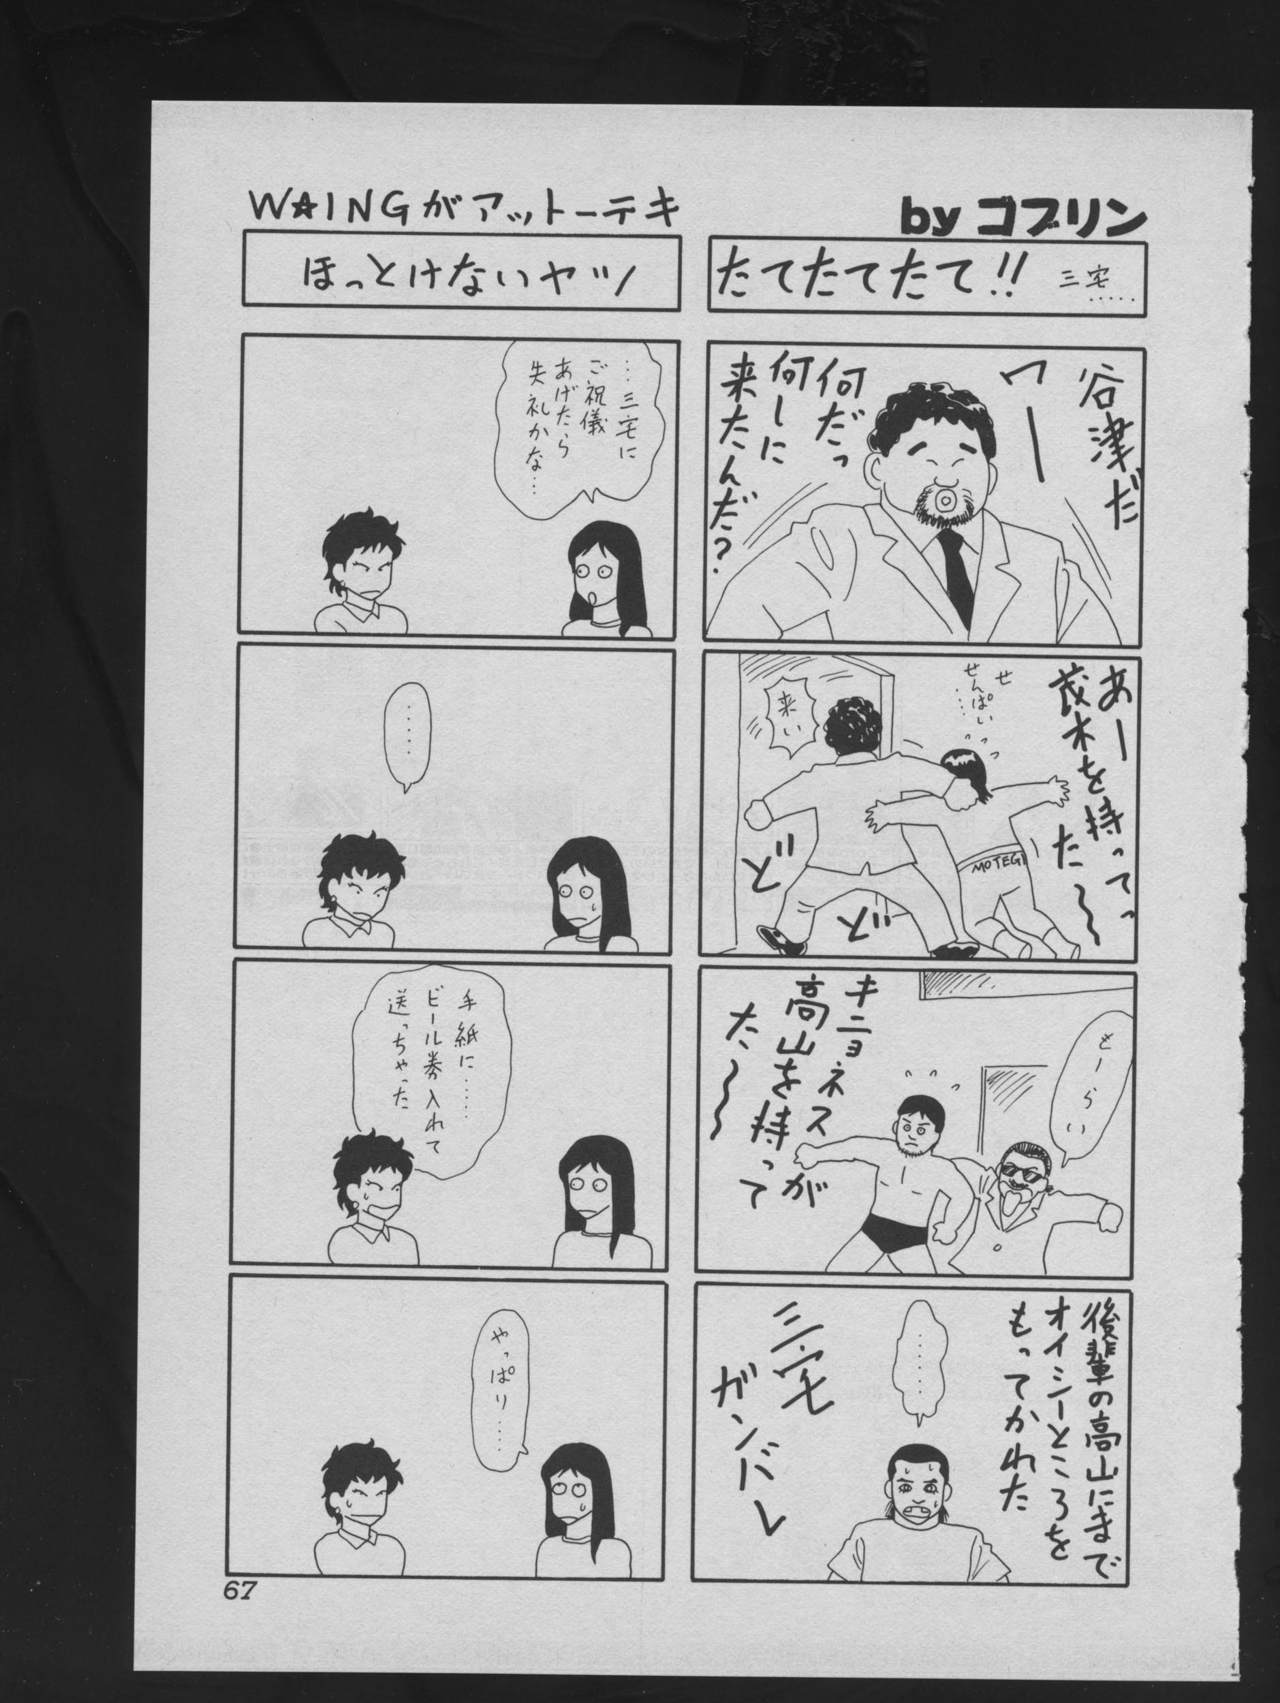 W☆INGがアットーテキ
by ゴブリン
たてたてたて!! 三宅……
谷津だ
ワー
何だっ
何しに
来たんだ?
あー
茂木を持ってっ
た〜〜
せ
せんぱい……
来い
ズズ
ズズ
MOTEGI
キニョネスが
高山を持って
た〜〜
せーらい
後輩の高山にまで
オイシーところを
もってかれた
……
三宅
ガンバレ
ほっとけないヤツ
…三宅に
ご祝儀
あげたら
失礼かな…
……
手紙に……
ビール券入れて
送っちゃった
やっぱり……
67